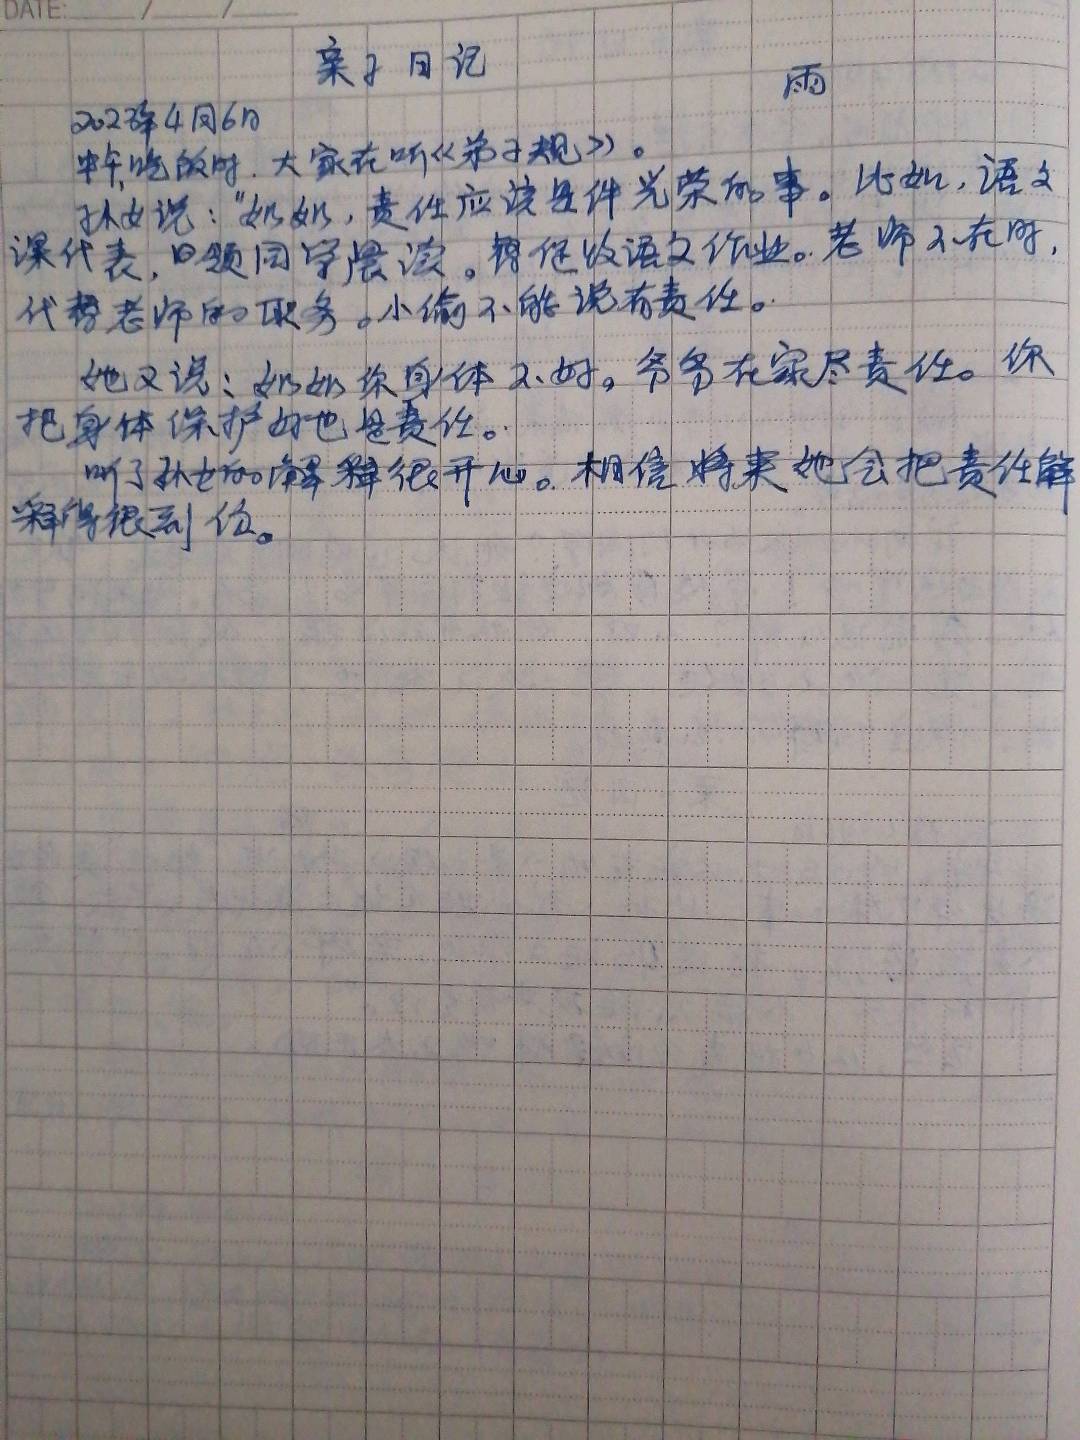 DATE: / /
亲子日记 雨
2023年4月6日
中午吃饭时，大家在听《弟子规》。
孙女说："奶奶，责任应该是件光荣的事。比如，语文
课代表，日领同学晨读。替你收语文作业。老师不在时，
代替老师的职务。小偷不能说有责任。
她又说：奶奶你身体不好。爷爷在家尽责任。你
把身体保护好也是责任。
听了孙女的解释很开心。相信将来她会把责任解
释得很到位。